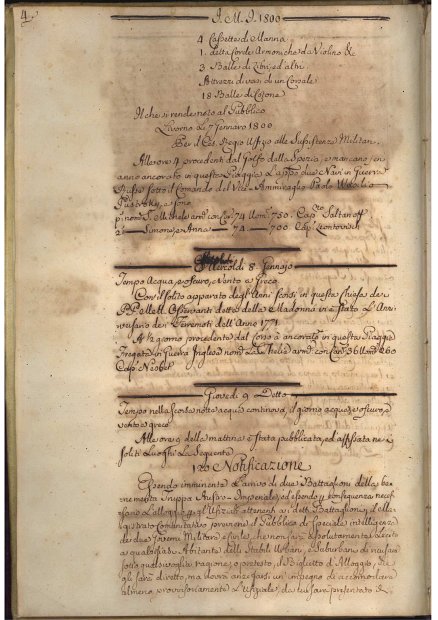 4.
I. M. I. 1800
4 Cassette di Manna
1. detta Corde Armoniche da Violino &c
3 Balle di Zibi, ed altri
Attrezzi di vasi di un Corsale
18 Balle di Cotone
Il che si rende noto al Pubblico
Livorno li 7 Gennaro 1800
Per il Ces. Regio Ufizio alle Sussistenze Militari.
All'ore 4 procedenti dal Golfo della Spezia, e mancano, en
anno ancorato in questa Piaggia le appo due Navi in Guerra
Russe sotto il Comando del Vice-Ammiraglio Paolo
e sono
p: nom. S. Michele arm. con Can. 74 Uom. 750. Cap.
2: Simone, e Anna 74 700 Cap.
Mercoldi 8 Gennajo
Tempo Acqua, e oscuro, Vento a Greco
Con il solito apparato degl'Anni scorsi in questa Chiesa de
PP. Osservanti detti della Madonna vi è stato l'Anni
versario de Terremoti dell'Anno 1771
A giorno procedente dal Corso à ancorato in questa Piaggia
Fregata in Guerra Inglese nom. La armd. con Can. 36 Uom. 260
Cap.
Giovedi 9 Detto
Tempo nella scorsa notte acqua continova, il giorno acqua, e oscuro, e
vento greco
Alle ora 9 della mattina è stata pubblicata, ed affissata ne
soliti Luoghi La Seguente
Notificazione
Essendo imminente L'arrivo di due Battaglioni della bene
merita Truppa Austro-Imperiale, ed essendo p. conseguenza neces
sario L'alloggio p. gl'Ufiziali attenenti ai detti Battaglioni, il Ma
gistrato Comunitativo previene il Pubblico di Speciale intelligenza
de due Governi Militare, e Civile, che non sarà assolutamente Lecito
a qualsisia Abitante delli Stabili Urbani, e Suburbani di ricusare
sotto qualsivoglia ragione, o pretesto, il Biglietto d'Alloggio, che
gli sarà diretto, ma dovrà anzi farsi un impegno di accomodare
almeno, provvisoriamente L'Ufiziale, da cui sarà presentato il